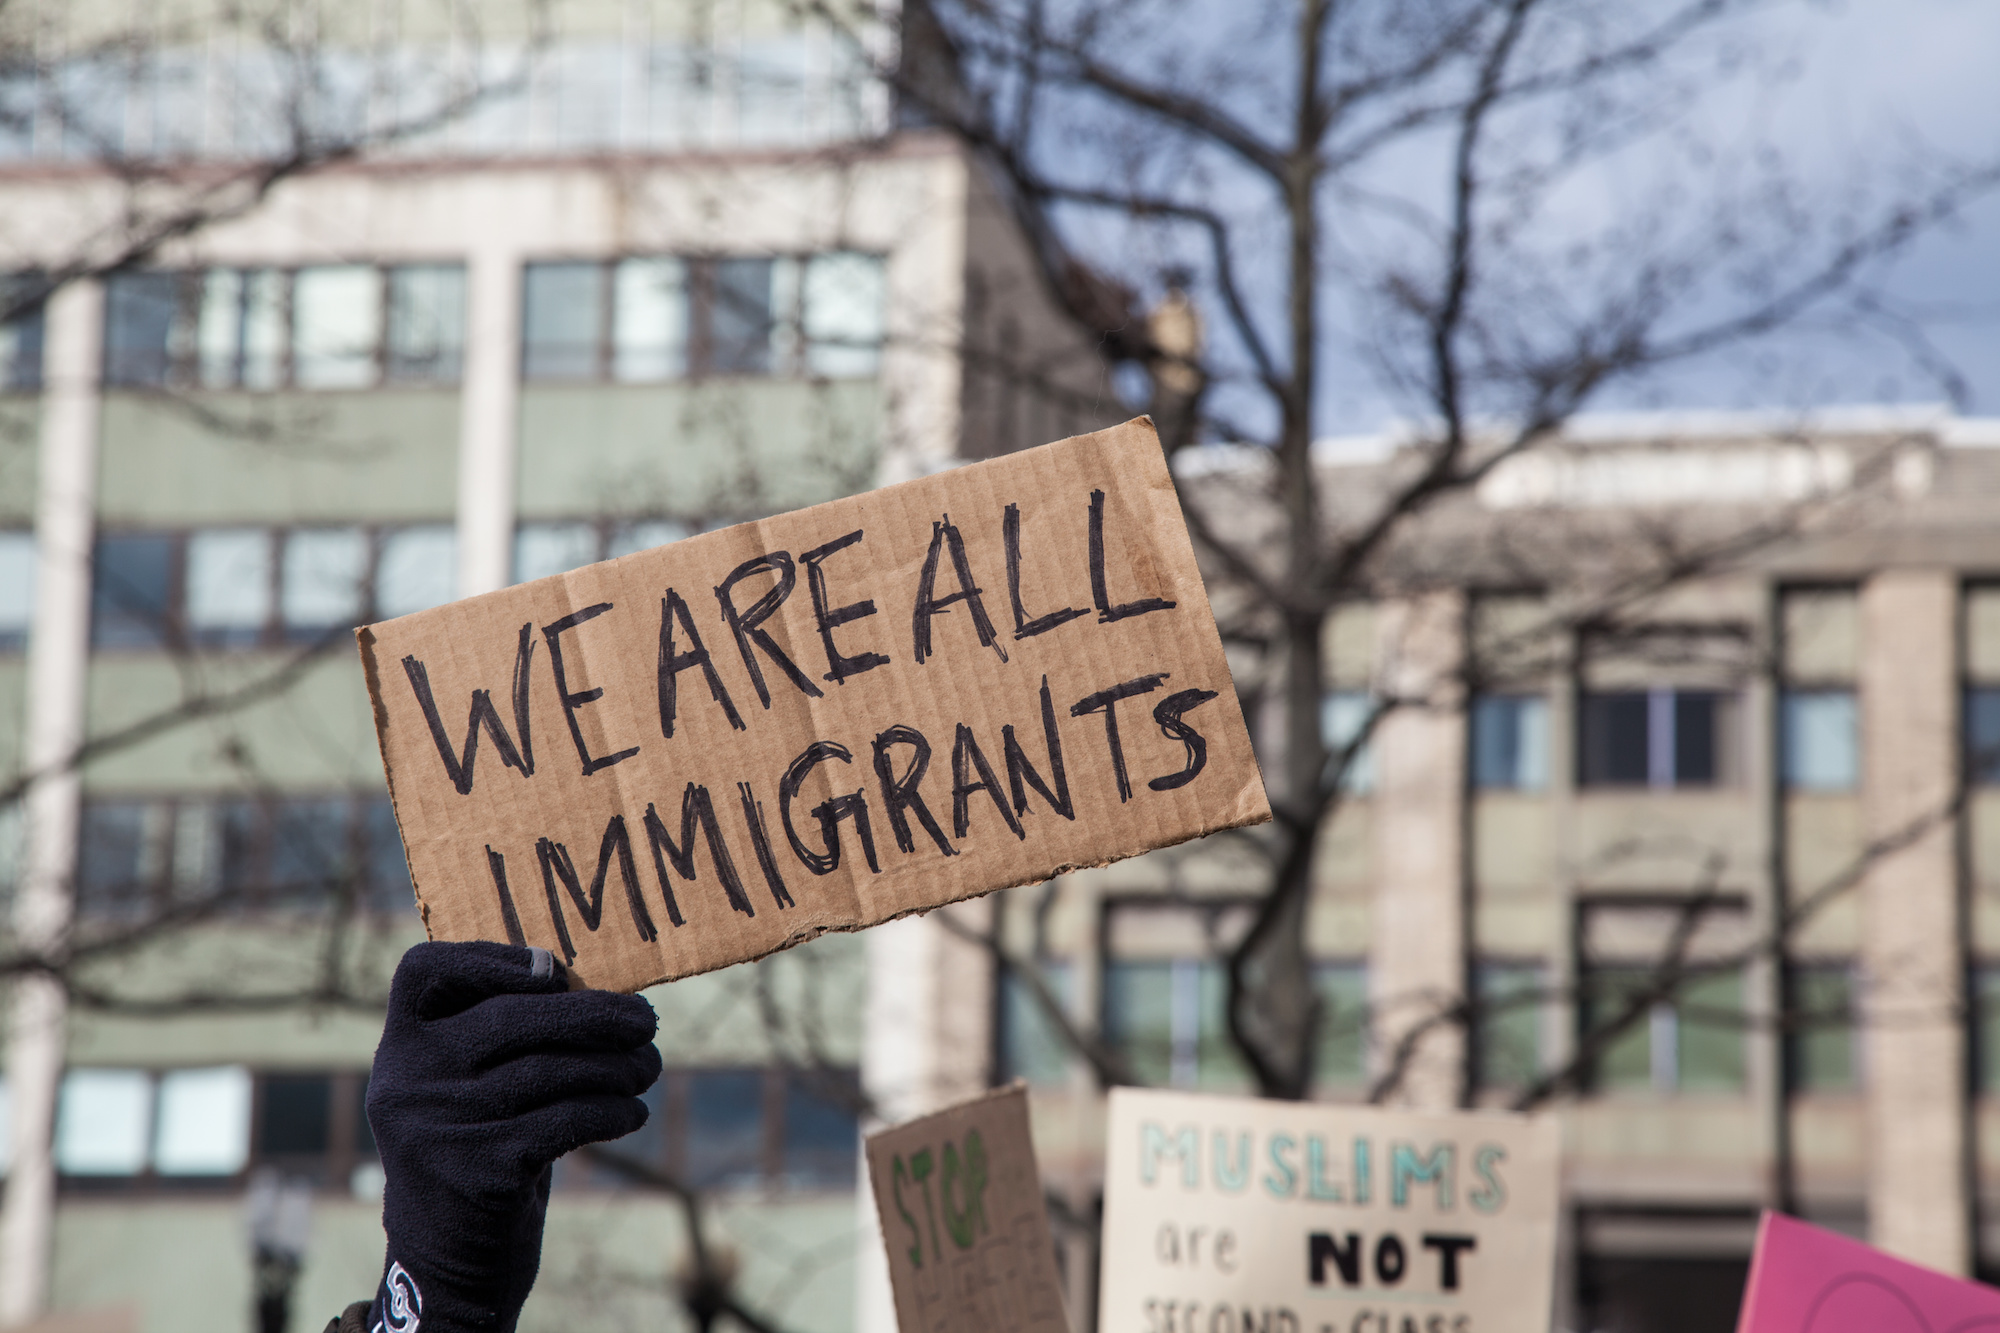 WE ARE ALL
IMMIGRANTS
STOP
MUSLIMS
are NOT
SECOND-CLASS